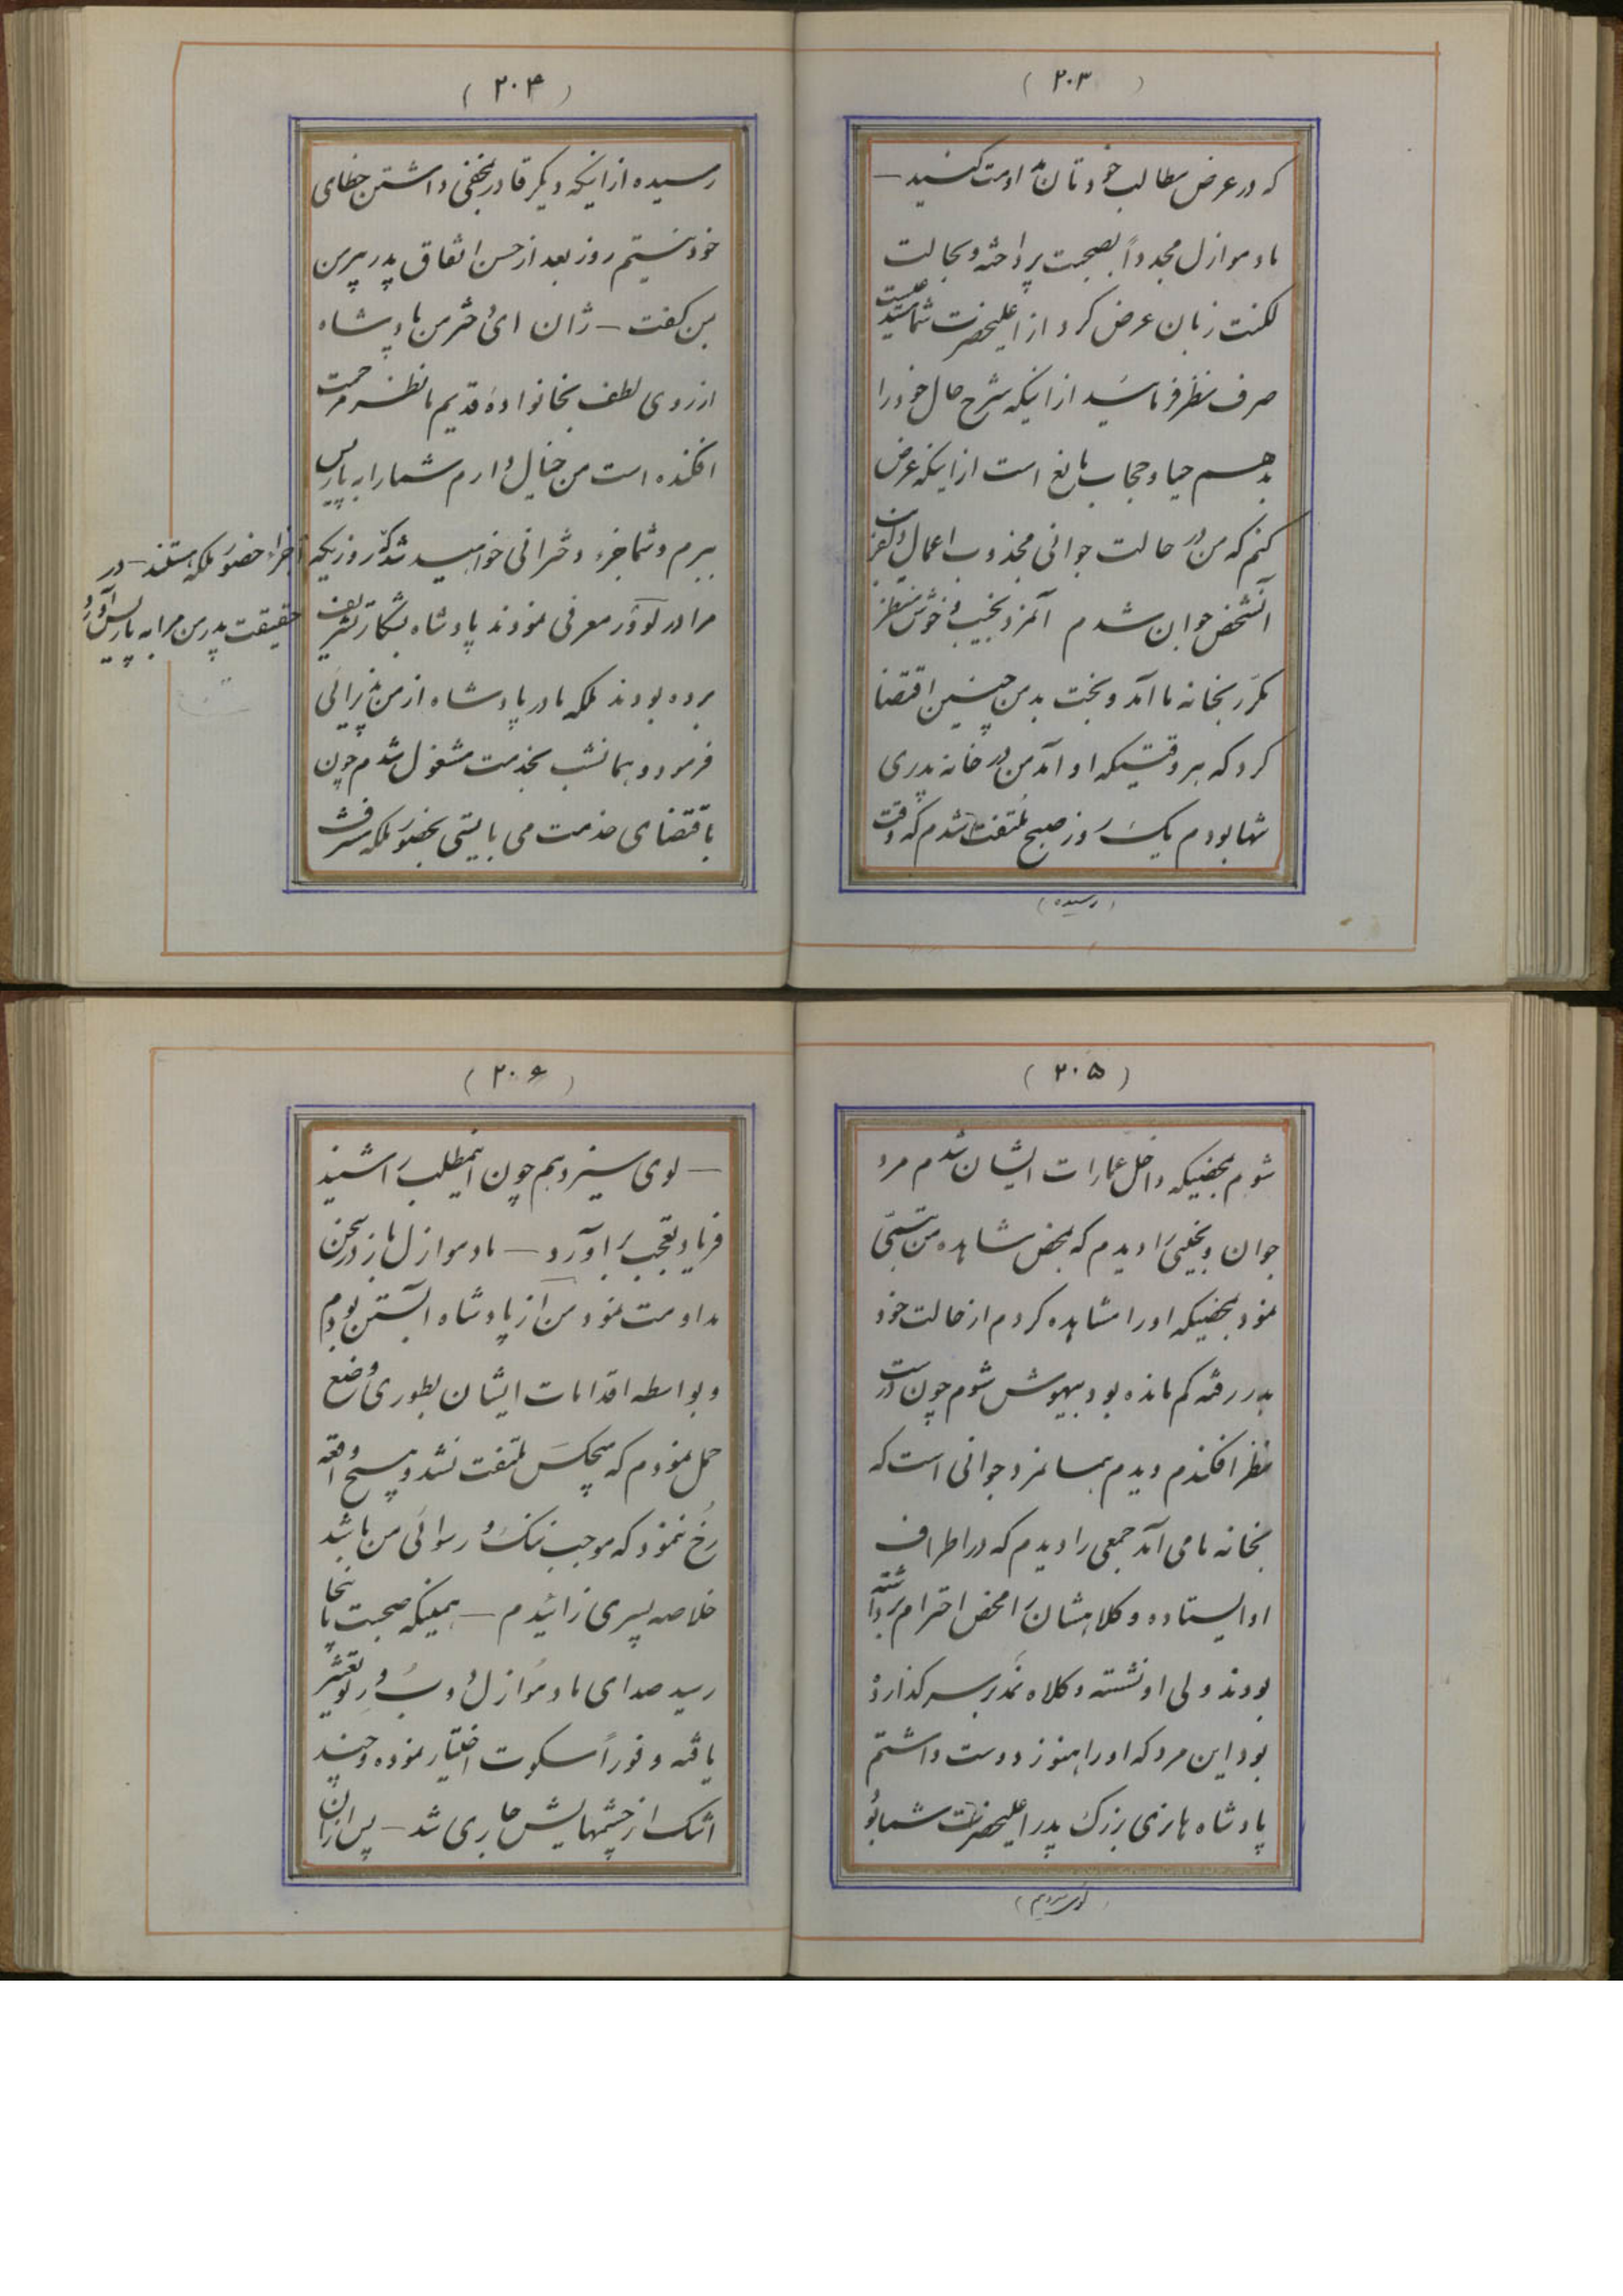 ( ۲۰۳ )
که در عرض مطالب خودتان مداومت کنید —
مادموازل مجدداً بصحبت پرداخته و بحالت
لکنت زبان عرض کرد از اعلیحضرت شما مستدعیست
صرف نظر فرمائید از اینکه شرح حال خود را
بدهم حیا و حجاب مانع است از اینکه عرض
کنم که من در حالت جوانی مجذوب اعمال و
آنشخص جوان شدم آنمرد نجیب و خوش منظر
مکرّر بخانه ما آمد و بخت بد من چنین اقتضا
کرد که هر وقتیکه او آمد من در خانه پدری
تنها بودم یک روز صبح ملتفت شدم که وقت
(رسیده)
( ۲۰۴ )
رسیده از اینکه دیگر قادر بمخفی داشتن خطای
خود نیستم روز بعد از حسن اتفاق پدر پیر من
بمن گفت — ژان ای دختر من پادشاه
از روی لطف بخانواده قدیم ما نظر مرحمت
افکنده است من خیال دارم شما را به پاریس
ببرم و شما جزء دخترانی خواهید شد که روزیکه
اجزاء حضور ملکه هستند — در
حقیقت پدر من مرا به پاریس آورد و
مرا در لوور معرفی نمودند پادشاه بشکار تشریف
برده بودند ملکه مادر پادشاه از من پذیرائی
فرمود و همانشب بخدمت مشغول شدم چون
باقتضای خدمت می بایستی بحضور ملکه مشرف
( ۲۰۵ )
شوم بمحضیکه داخل عمارات ایشان شدم مرد
جوان و نجیبی را دیدم که بمحض مشاهده من تبسّمی
نمود بمحضیکه او را مشاهده کردم از حالت خود
بدر رفته کم مانده بود بیهوش شوم چون درست
نظر افکندم دیدم همان مرد جوانی است که
بخانه ما می آمد جمعی را دیدم که در اطراف
او ایستاده و کلاهشان را محض احترام برداشته
بودند ولی او نشسته و کلاه نمد بر سر گذارده
بود این مرد که او را هنوز دوست داشتم
پادشاه هانری بزرگ پدر اعلیحضرت شما بود
(لوی سیزدهم)
( ۲۰۶ )
— لوی سیزدهم چون اینمطلب را شنید
فریاد تعجب برآورد — مادموازل باز در سخن
مداومت نمود من از پادشاه آبستن بودم
و بواسطه اقدامات ایشان بطوری وضع
حمل نمودم که هیچکس ملتفت نشد و هیچ واقعه
رخ ننمود که موجب ننگ و رسوائی من باشد
خلاصه پسری زائیدم — همینکه صحبت باینجا
رسید صدای مادموازل دو سن ور تغییر
یافته و فوراً سکوت اختیار نموده و چند
اشک از چشمهایش جاری شد — پس از آن